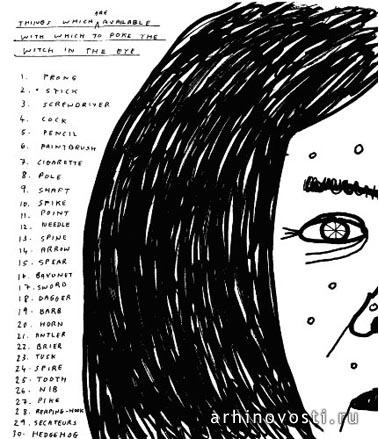 THINGS WHICH ARE AVAILABLE
WITH WHICH TO POKE THE
WITCH IN THE EYE
1. PRONG
2. STICK
3. SCREWDRIVER
4. COCK
5. PENCIL
6. PAINTBRUSH
7. CIGARETTE
8. POLE
9. SHAFT
10. SPIKE
11. POINT
12. NEEDLE
13. SPINE
14. ARROW
15. SPEAR
16. BAYONET
17. SWORD
18. DAGGER
19. BARB
20. HORN
21. ANTLER
22. BRIER
23. TUSK
24. SPIRE
25. TOOTH
26. NIB
27. PIKE
28. REAPING-HOOK
29. SECATEURS
30. HEDGEHOG
arhinovosti.ru